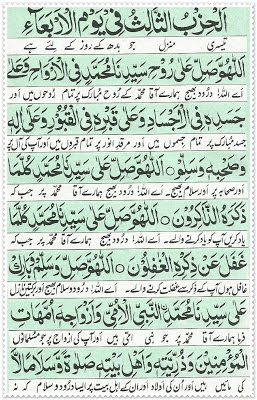 اَلْحِزْبُ الثَّالِثُ فِيْ يَوْمِ الْاَرْبِعَآءِ
تیسری منزل جو بدھ کے روز کے لئے ہے
اَللّٰهُمَّ صَلِّ عَلٰى رُوْحِ سَيِّدِنَا مُحَمَّدٍ فِي الْاَرْوَاحِ وَعَلٰى
اے اللہ! درود بھیج ہمارے آقا محمد کے روح مبارک پر تمام روحوں میں اور
جَسَدِهٖ فِي الْاَجْسَادِ وَعَلٰى قَبْرِهٖ فِي الْقُبُوْرِ وَعَلٰى اٰلِهٖ
جسد مبارک پر تمام جسموں میں اور مرقد انور پر تمام قبروں میں اور آپ کی آل پر
وَصَحْبِهٖ وَسَلِّمْ ○ اَللّٰهُمَّ صَلِّ عَلٰى سَيِّدِنَا مُحَمَّدٍ كُلَّمَا
اور صحابہ پر اور سلام بھیج اے اللہ! درود بھیج ہمارے آقا محمد پر جب کہ
ذَكَرَهُ الذَّاكِرُوْنَ ○ اَللّٰهُمَّ صَلِّ عَلٰى سَيِّدِنَا مُحَمَّدٍ كُلَّمَا
یاد کریں آپ کو یاد کرنے والے۔ اے اللہ! درود بھیج ہمارے آقا محمد پر جب کہ
غَفَلَ عَنْ ذِكْرِهِ الْغٰفِلُوْنَ ○ اَللّٰهُمَّ صَلِّ وَسَلِّمْ وَبَارِكْ
غافل ہوں آپ کے ذکر سے غفلت کرنے والے۔ اے اللہ! درود و سلام بھیج اور برکتیں نازل
عَلٰى سَيِّدِنَا مُحَمَّدِ النَّبِيِّ الْاُمِّيِّ وَاَزْوَاجِهٖ اُمَّهَاتِ
فرما ہمارے آقا محمد پر جو نبی امی ہیں اور آپ کی ازواج پر جو مسلمانوں
الْمُؤْمِنِيْنَ وَذُرِّيَّتِهٖ وَاَهْلِ بَيْتِهٖ صَلٰوةً وَّسَلَامًا لَّا
کی مائیں ہیں اور ان کی اولاد اور ان کے اہل بیت پر ایسا درود و سلام کہ نہ